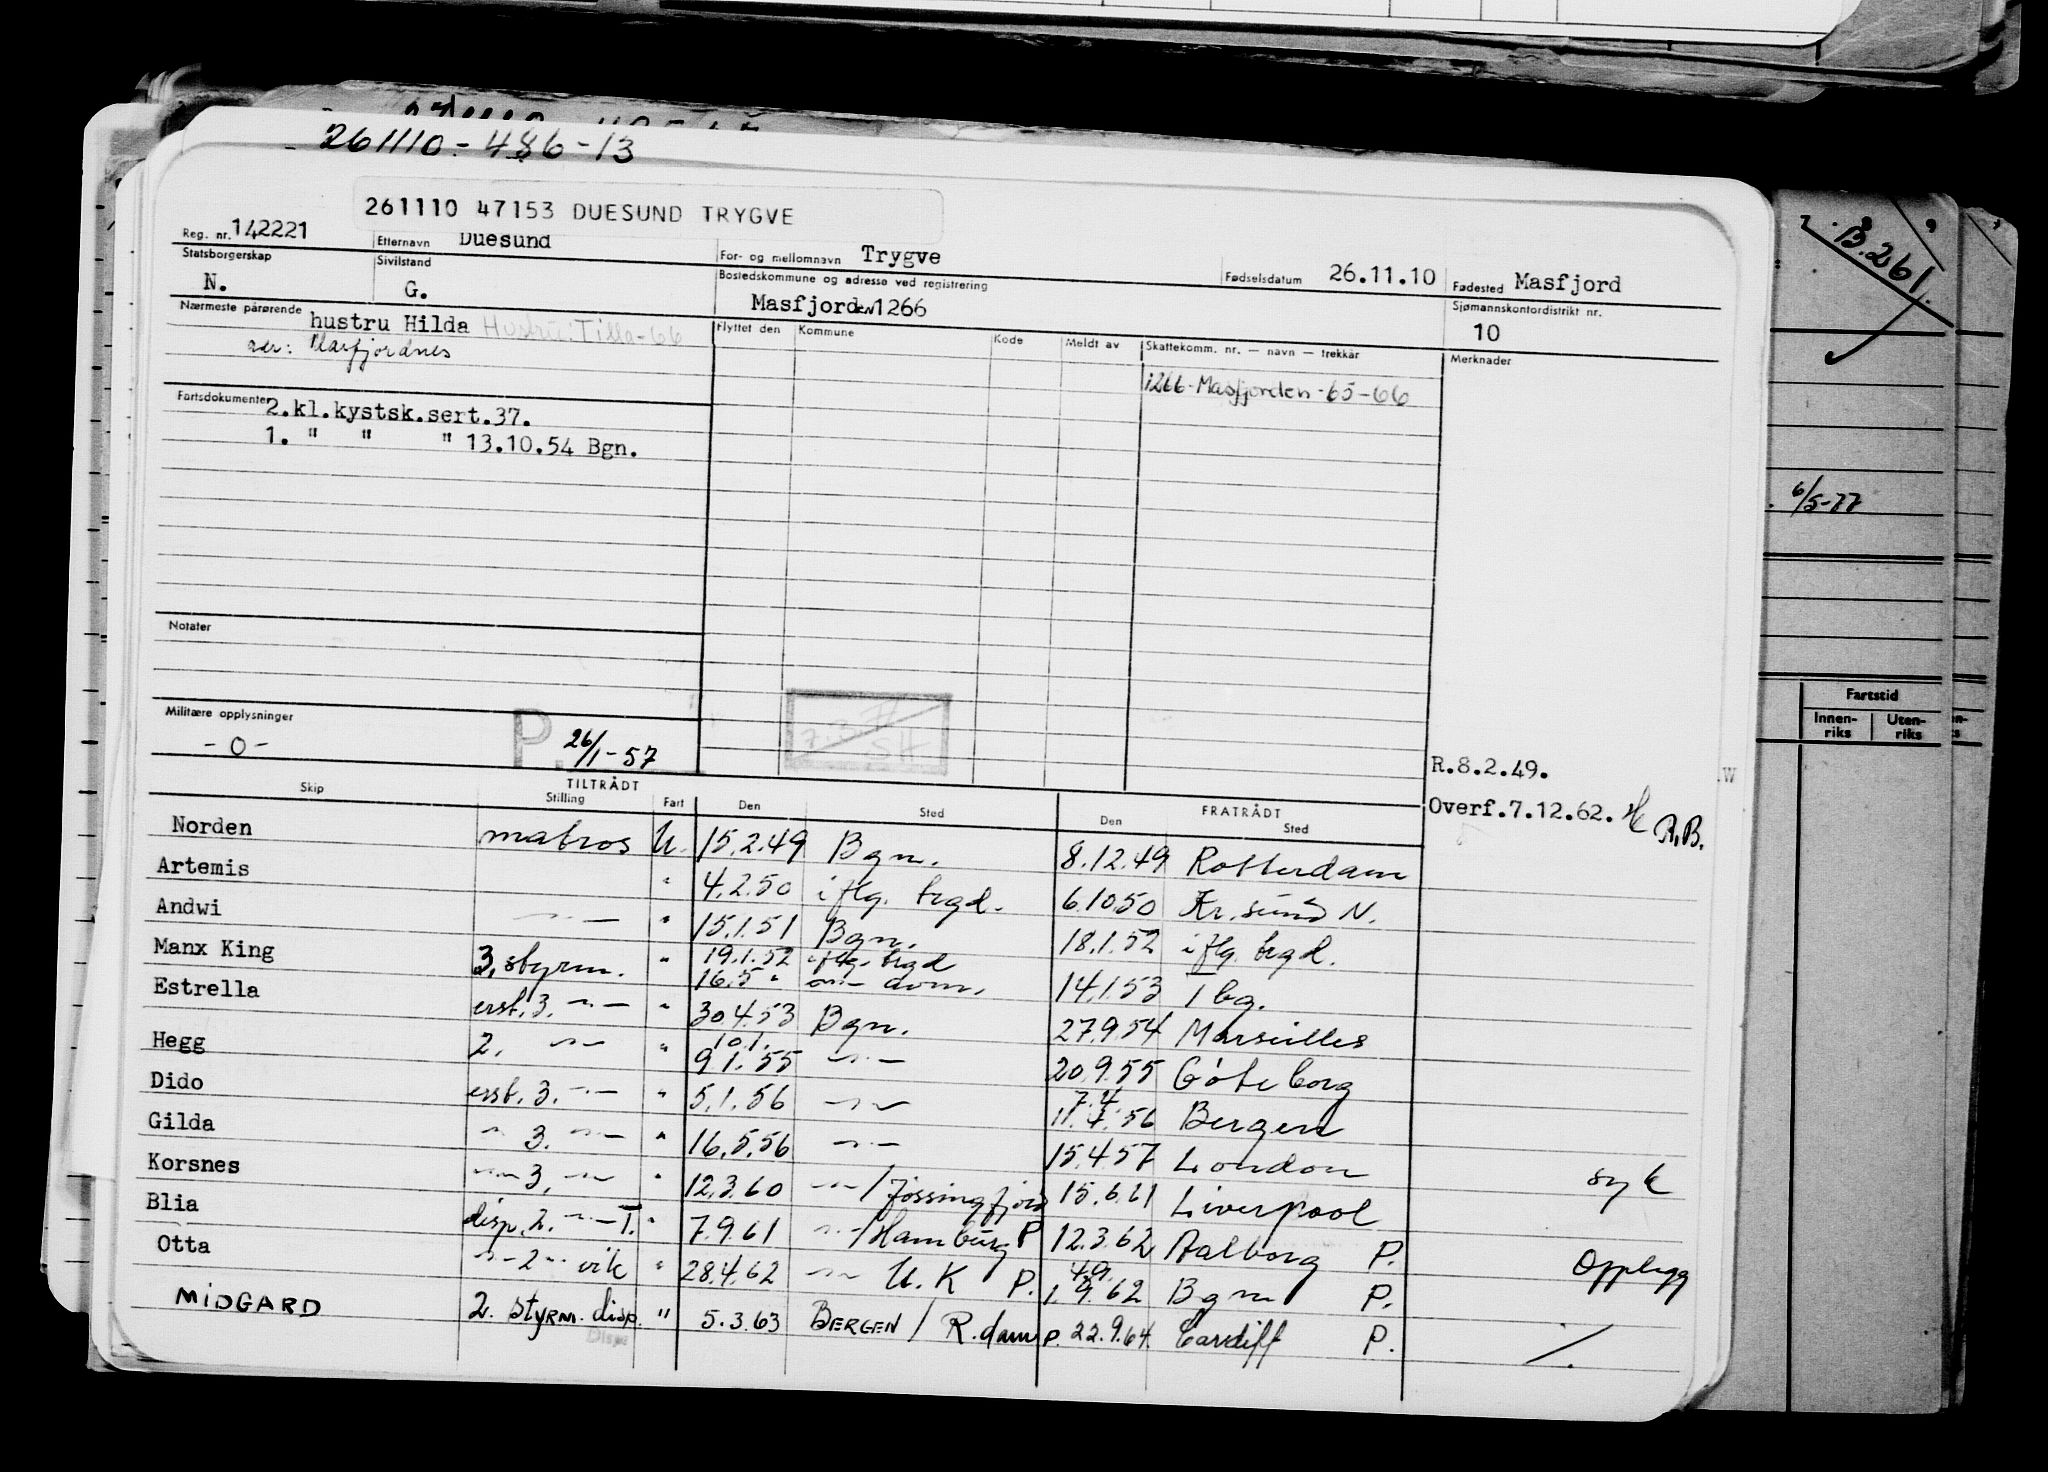 261110-486-13
261110 47153 DUESUND TRYGVE
Reg. nr. 142221 Etternavn Duesund For- og mellomnavn Trygve Fødselsdatum 26.11.10 Fødested Masfjord
Statsborgerskap N. Sivilstand G. Bostedskommune og adresse ved registrering Masfjorden 1266 Sjømannskontordistrikt nr. 10
Nærmeste pårørende hustru Hilda Hustru: Tilla-66
adr: Masfjordnes
Flyttet den Kommune Kode Meldt av Skattekomm. nr. — navn — trekkår Merknader
1266-Masfjorden-65-66
Fartsdokumenter 2.kl.kystsk.sert.37.
1. " " " 13.10.54 Bgn.
Notater
Militære opplysninger
-0-
P. 26/1-57
R.8.2.49.
Overf.7.12.62. R.B.
Skip TILTRÅDT Stilling Fart Den Sted FRATRÅDT Den Sted
Norden matros U. 15.2.49 Bgn. 8.12.49 Rotterdam
Artemis " 4.2.50 iflg. brgd. 6.10.50 Kr.sund N.
Andwi —"— " 15.1.51 Bgn. 18.1.52 iflg. brgd.
Manx King 3. styrm. " 19.1.52 iflg. brgd 14.1.53 Tbg.
16.5 "
Estrella erst. 3. —"— " 30.4.53 Bgn. 27.9.54 Marseilles
Hegg 2. —"— " 10.1. 9.1.55 —"— 20.9.55 Göteborg
Dido erst. 3. —"— " 5.1.56 —"— 7.4. 11.4.56 Bergen
Gilda " 3. —"— " 16.5.56 —"— 15.4.57 London syk
Korsnes —"— 3. —"— " 12.3.60 —"—/Jøssingfjord 15.6.61 Liverpool
Blia disp. 2. —"— T. " 7.9.61 —"—/Hamburg P 12.3.62 Aalborg P. Opplegg
Otta —"— 2 —"— vik " 28.4.62 —"— U.K P. 4.9. 1.9.62 Bgn P.
MIDGARD 2. styrm. disp. " 5.3.63 BERGEN / R.dam P. 22.9.64 Cardiff P. /.
Disp
B.261.
6/5-77
Fartstid
Innenriks Utenriks